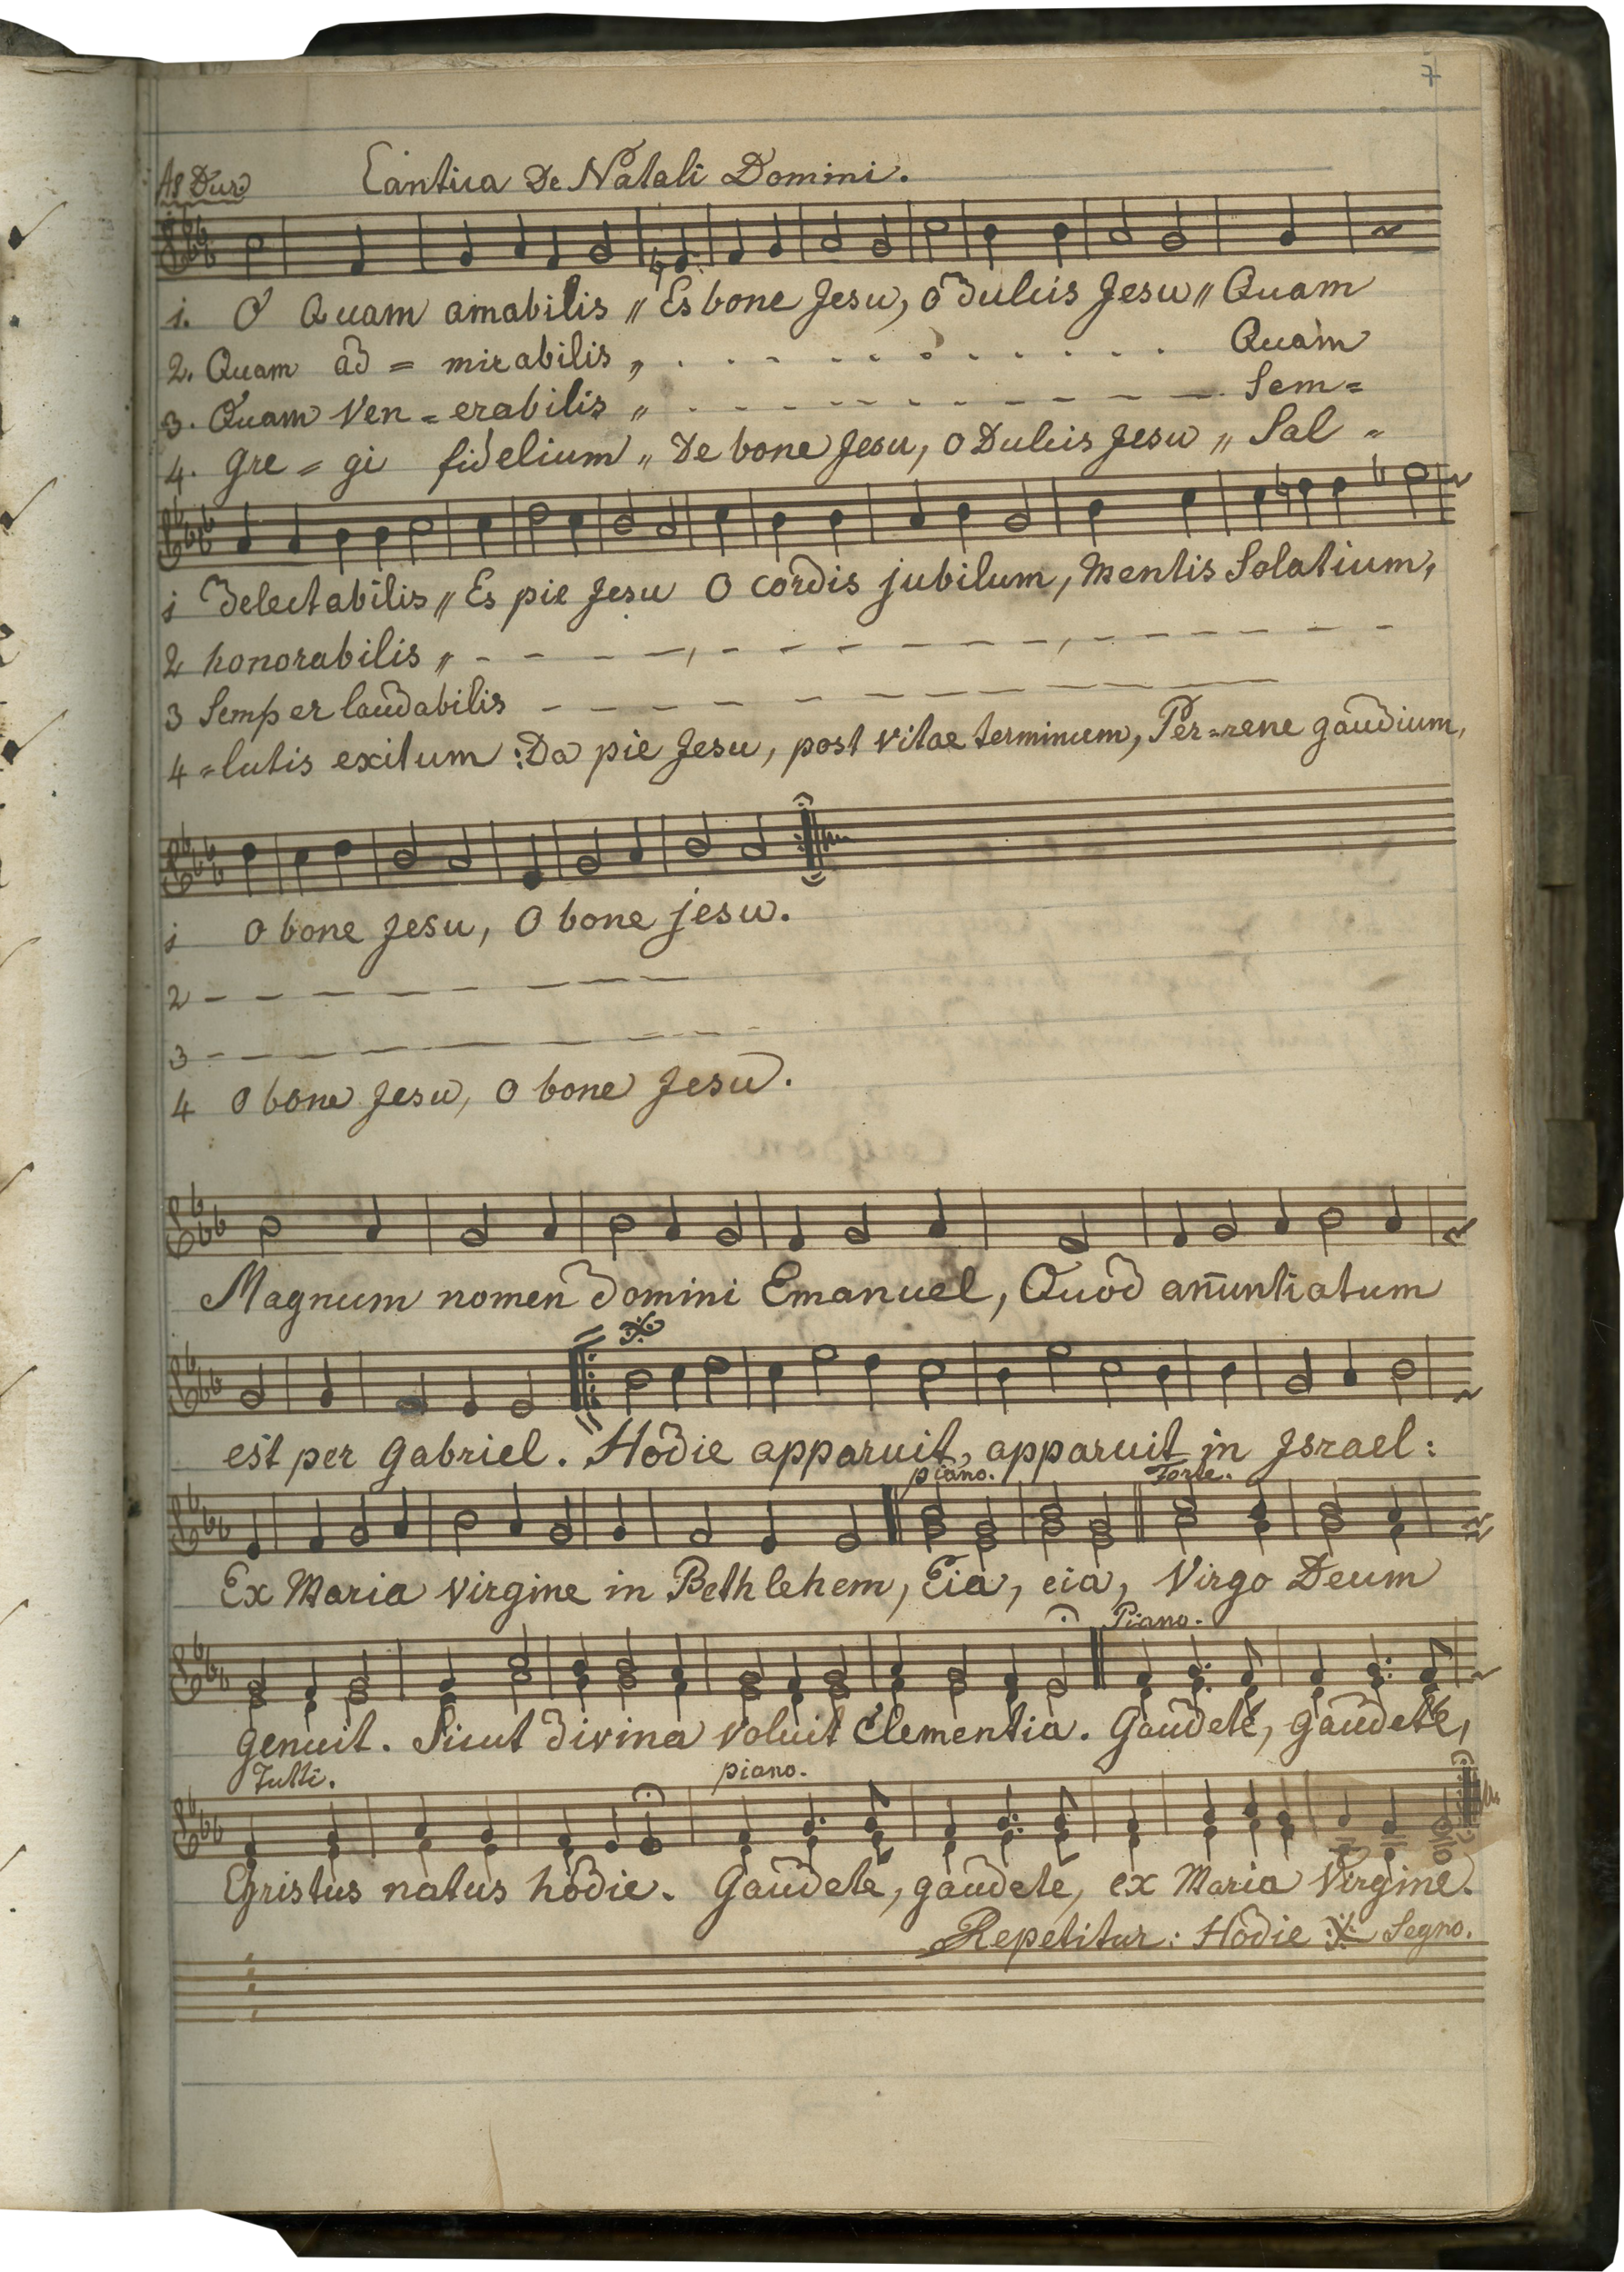 7
As Dur
Cantica De Natali Domini.
1. O Quam amabilis „ Es bone Jesu, o dulcis Jesu „ Quam
2. Quam ad = mirabilis „ . . - - . . . . . . . . Quam
3. Quam Ven = erabilis „ . - - - - - - - - - - Sem=
4. Gre = gi fidelium „ De bone Jesu, o Dulcis Jesu „ Sal =
1 delectabilis „ Es pie Jesu O cordis jubilum, Mentis Solatium,
2 honorabilis „ - - - - , - - - - - , - - - - - -
3 Semper laudabilis - - - - - - - - - - - -
4 =lutis exitum : Da pie Jesu, post vitae terminum, Per=rene gaudium,
1 O bone Jesu, O bone jesu.
2 - - - - - - - - -
3 - - - - - - - - - -
4 O bone Jesu, O bone Jesu.
Magnum nomen domini Emanuel, Quod anũntiatum
est per Gabriel. Hodie apparuit, apparuit in Jsrael :
piano. Forte.
Ex Maria Virgine in Bethlehem, Eia, eia, Virgo Deum
Piano.
genuit. Sicut divina voluit Clementia. Gaudete, gaudete,
Tutti. piano.
Christus natus hodie. Gaudete, gaudete, ex Maria Virgine.
Repetitur: Hodie 𝄋 Segno.